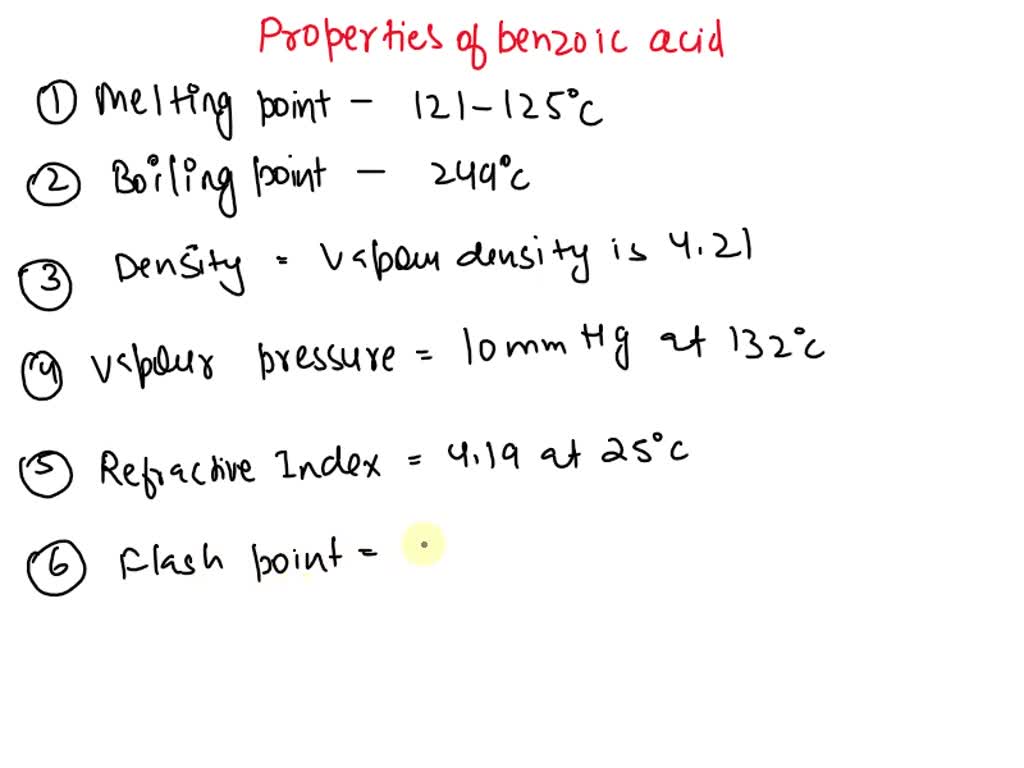 Properties of benzoic acid
① Melting point - 121-125°C
② Boiling point - 249°C
③ Density = Vapour density is 4.21
④ Vapour pressure = 10 mm Hg at 132°C
⑤ Refractive Index = 4.19 at 25°C
⑥ Flash point =